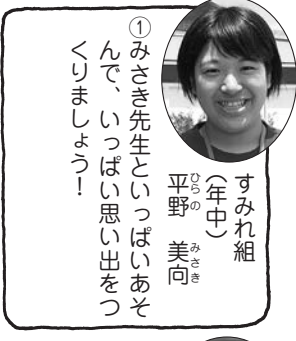 すみれ組
（年中）
平野　美向
ひらの　みさき
①みさき先生といっぱいあそ
んで、いっぱい思い出をつ
くりましょう！